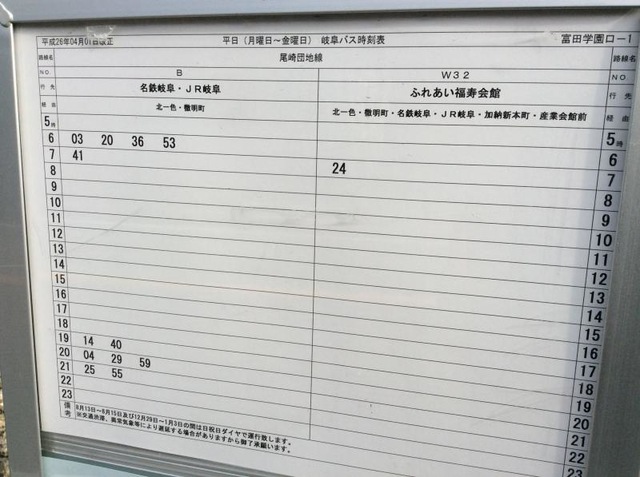 平成26年04月01日改正 平日(月曜日~金曜日) 岐阜バス時刻表 富田学園口-1
路線名 尾崎団地線 路線名
NO. B W32 NO.
行先 名鉄岐阜・JR岐阜 ふれあい福寿会館 行先
経由 北一色・徹明町 北一色・徹明町・名鉄岐阜・JR岐阜・加納新本町・産業会館前 経由
5時 5時
6 03 20 36 53 6
7 41 24 7
8 8
9 9
10 10
11 11
12 12
13 13
14 14
15 15
16 16
17 17
18 18
19 14 40 19
20 04 29 59 20
21 25 55 21
22 22
23 23
備考 8月13日~8月15日及び12月29日~1月3日の間は日祝日ダイヤで運行致します。
※交通渋滞、異常気象等により遅延する場合がありますから御了承願います。